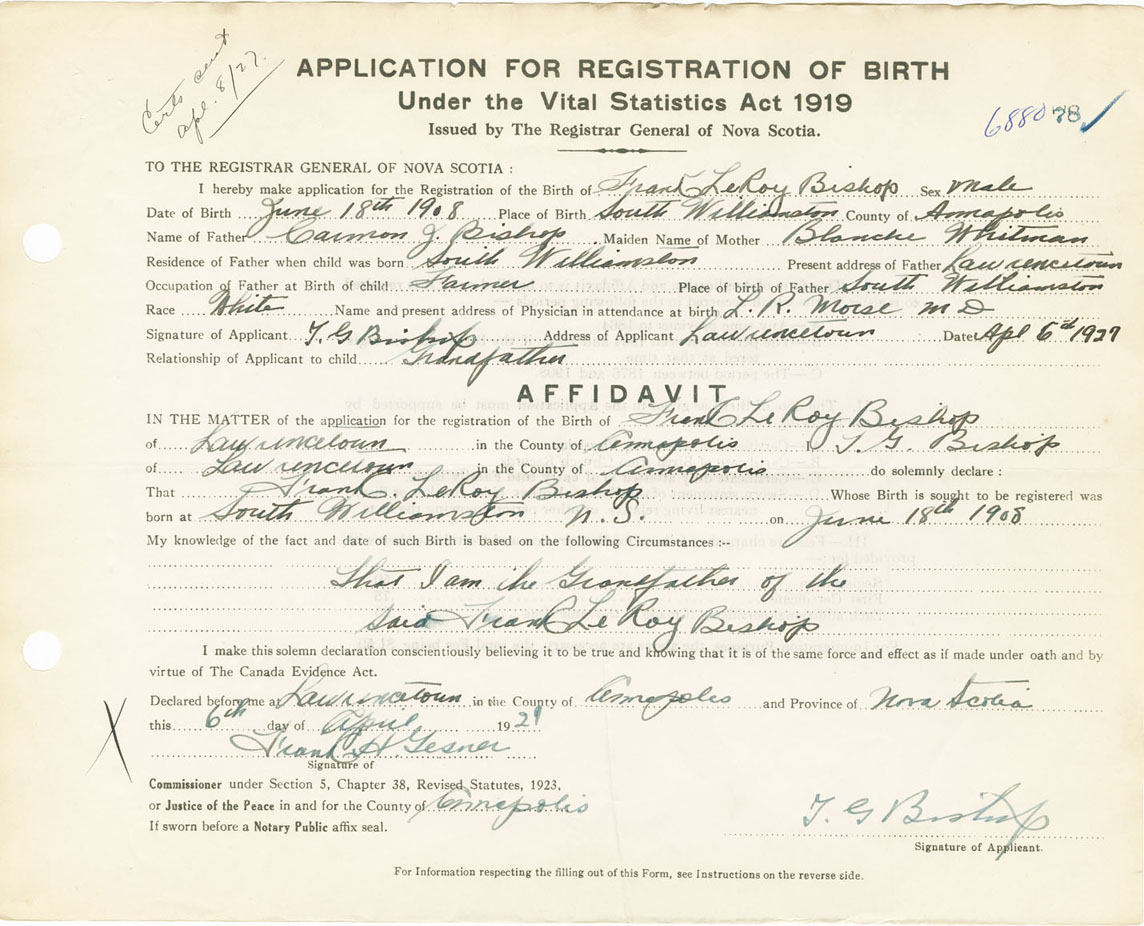 Certs sent
Apl. 8/27.
APPLICATION FOR REGISTRATION OF BIRTH
Under the Vital Statistics Act 1919
Issued by The Registrar General of Nova Scotia.
6880
TO THE REGISTRAR GENERAL OF NOVA SCOTIA :
I hereby make application for the Registration of the Birth of Frank LeRoy Bishop Sex Male
Date of Birth June 18th 1908 Place of Birth South Williamston County of Annapolis
Name of Father Carmon J. Bishop Maiden Name of Mother Blanche Whitman
Residence of Father when child was born South Williamston Present address of Father Lawrencetown
Occupation of Father at Birth of child Farmer Place of birth of Father South Williamston
Race White Name and present address of Physician in attendance at birth L. R. Morse M D
Signature of Applicant T. G Bishop Address of Applicant Lawrencetown Date Apl 6th 1927
Relationship of Applicant to child Grandfather
AFFIDAVIT
IN THE MATTER of the application for the registration of the Birth of Frank LeRoy Bishop
of Lawrencetown in the County of Annapolis I T. G. Bishop
of Lawrencetown in the County of Annapolis do solemnly declare :
That Frank LeRoy Bishop Whose Birth is sought to be registered was
born at South Williamston N. S. on June 18th 1908
My knowledge of the fact and date of such Birth is based on the following Circumstances :--
That I am the Grandfather of the
said Frank LeRoy Bishop
I make this solemn declaration conscientiously believing it to be true and knowing that it is of the same force and effect as if made under oath and by
virtue of The Canada Evidence Act.
Declared before me at Lawrencetown in the County of Annapolis and Province of Nova Scotia
this 6th day of April 192
Frank H. Gesner
Signature of
Commissioner under Section 5, Chapter 38, Revised Statutes, 1923,
or Justice of the Peace in and for the County of Annapolis
If sworn before a Notary Public affix seal.
T. G Bishop
Signature of Applicant.
For Information respecting the filling out of this Form, see Instructions on the reverse side.